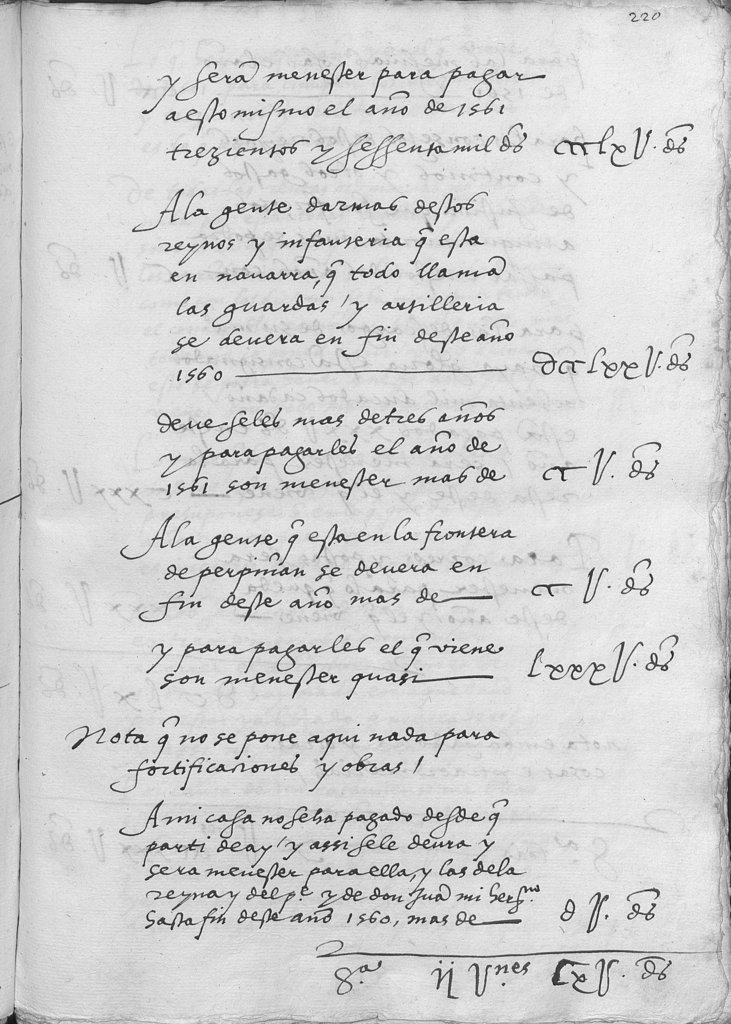 220
y sera menester para pagar
a esto mismo el año de 1561
trezientos y sessenta mil ds ccclxU. ds
A la gente darmas destos
reynos y infanteria q̃ esta
en navarra, q̃ todo llamã
las guardas / y artilleria
se devera en fin deste año
1560 dcclxxU. ds
deve seles mas de tres años
y para pagarles el año de
1561 son menester mas de ccU. ds
A la gente q̃ esta en la frontera
de perpiñan se devera en
fin deste año mas de ccU. ds
y para pagarles el q̃ viene
son menester quasi lxxxU. ds
Nota q̃ no se pone aqui nada para
fortificaciones y obras /
A mi casa no se ha pagado desde q̃
parti de ay / y assi se le devra y
sera menester para ella, y las de la
reyna y del pe. y de don Juã mi herno
hasta fin deste año 1560, mas de dU. ds
ij U.nes lxU. ds